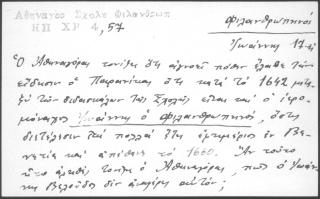 Αθηναγορ Σχολη Φιλανθρωπ
ΗΠ ΧΡ 4, 57
Φιλανθρωπηνοί
Ἰωάννης 17-
Ὁ Ἀθηναγόρας τονίζει ὅτι ἀγνοεῖ πόθεν ἔλαβε τὴν
εἴδησιν ὁ Παρανίκας ὅτι κατὰ τὸ 1642 μετα-
ξὺ τῶν διδασκάλων τῆς Σχολῆς εἶναι καὶ ὁ ἱερο-
μόναχος Ἰωάννης ὁ Φιλανθρωπηνός, ὅστις
διετέλεσεν ἐπὶ πολλὰ ἔτη ἐφημέριος ἐν Βε-
νετίᾳ καὶ ἀπέθανε τὸ 1660. Ἂν τοῦτο
ἀληθές, τονίζει ὁ Ἀθηναγόρας, πῶς ὁ Ἰωάν-
νης Βελοῦδος δὲν ἀναφέρει αὐτόν;